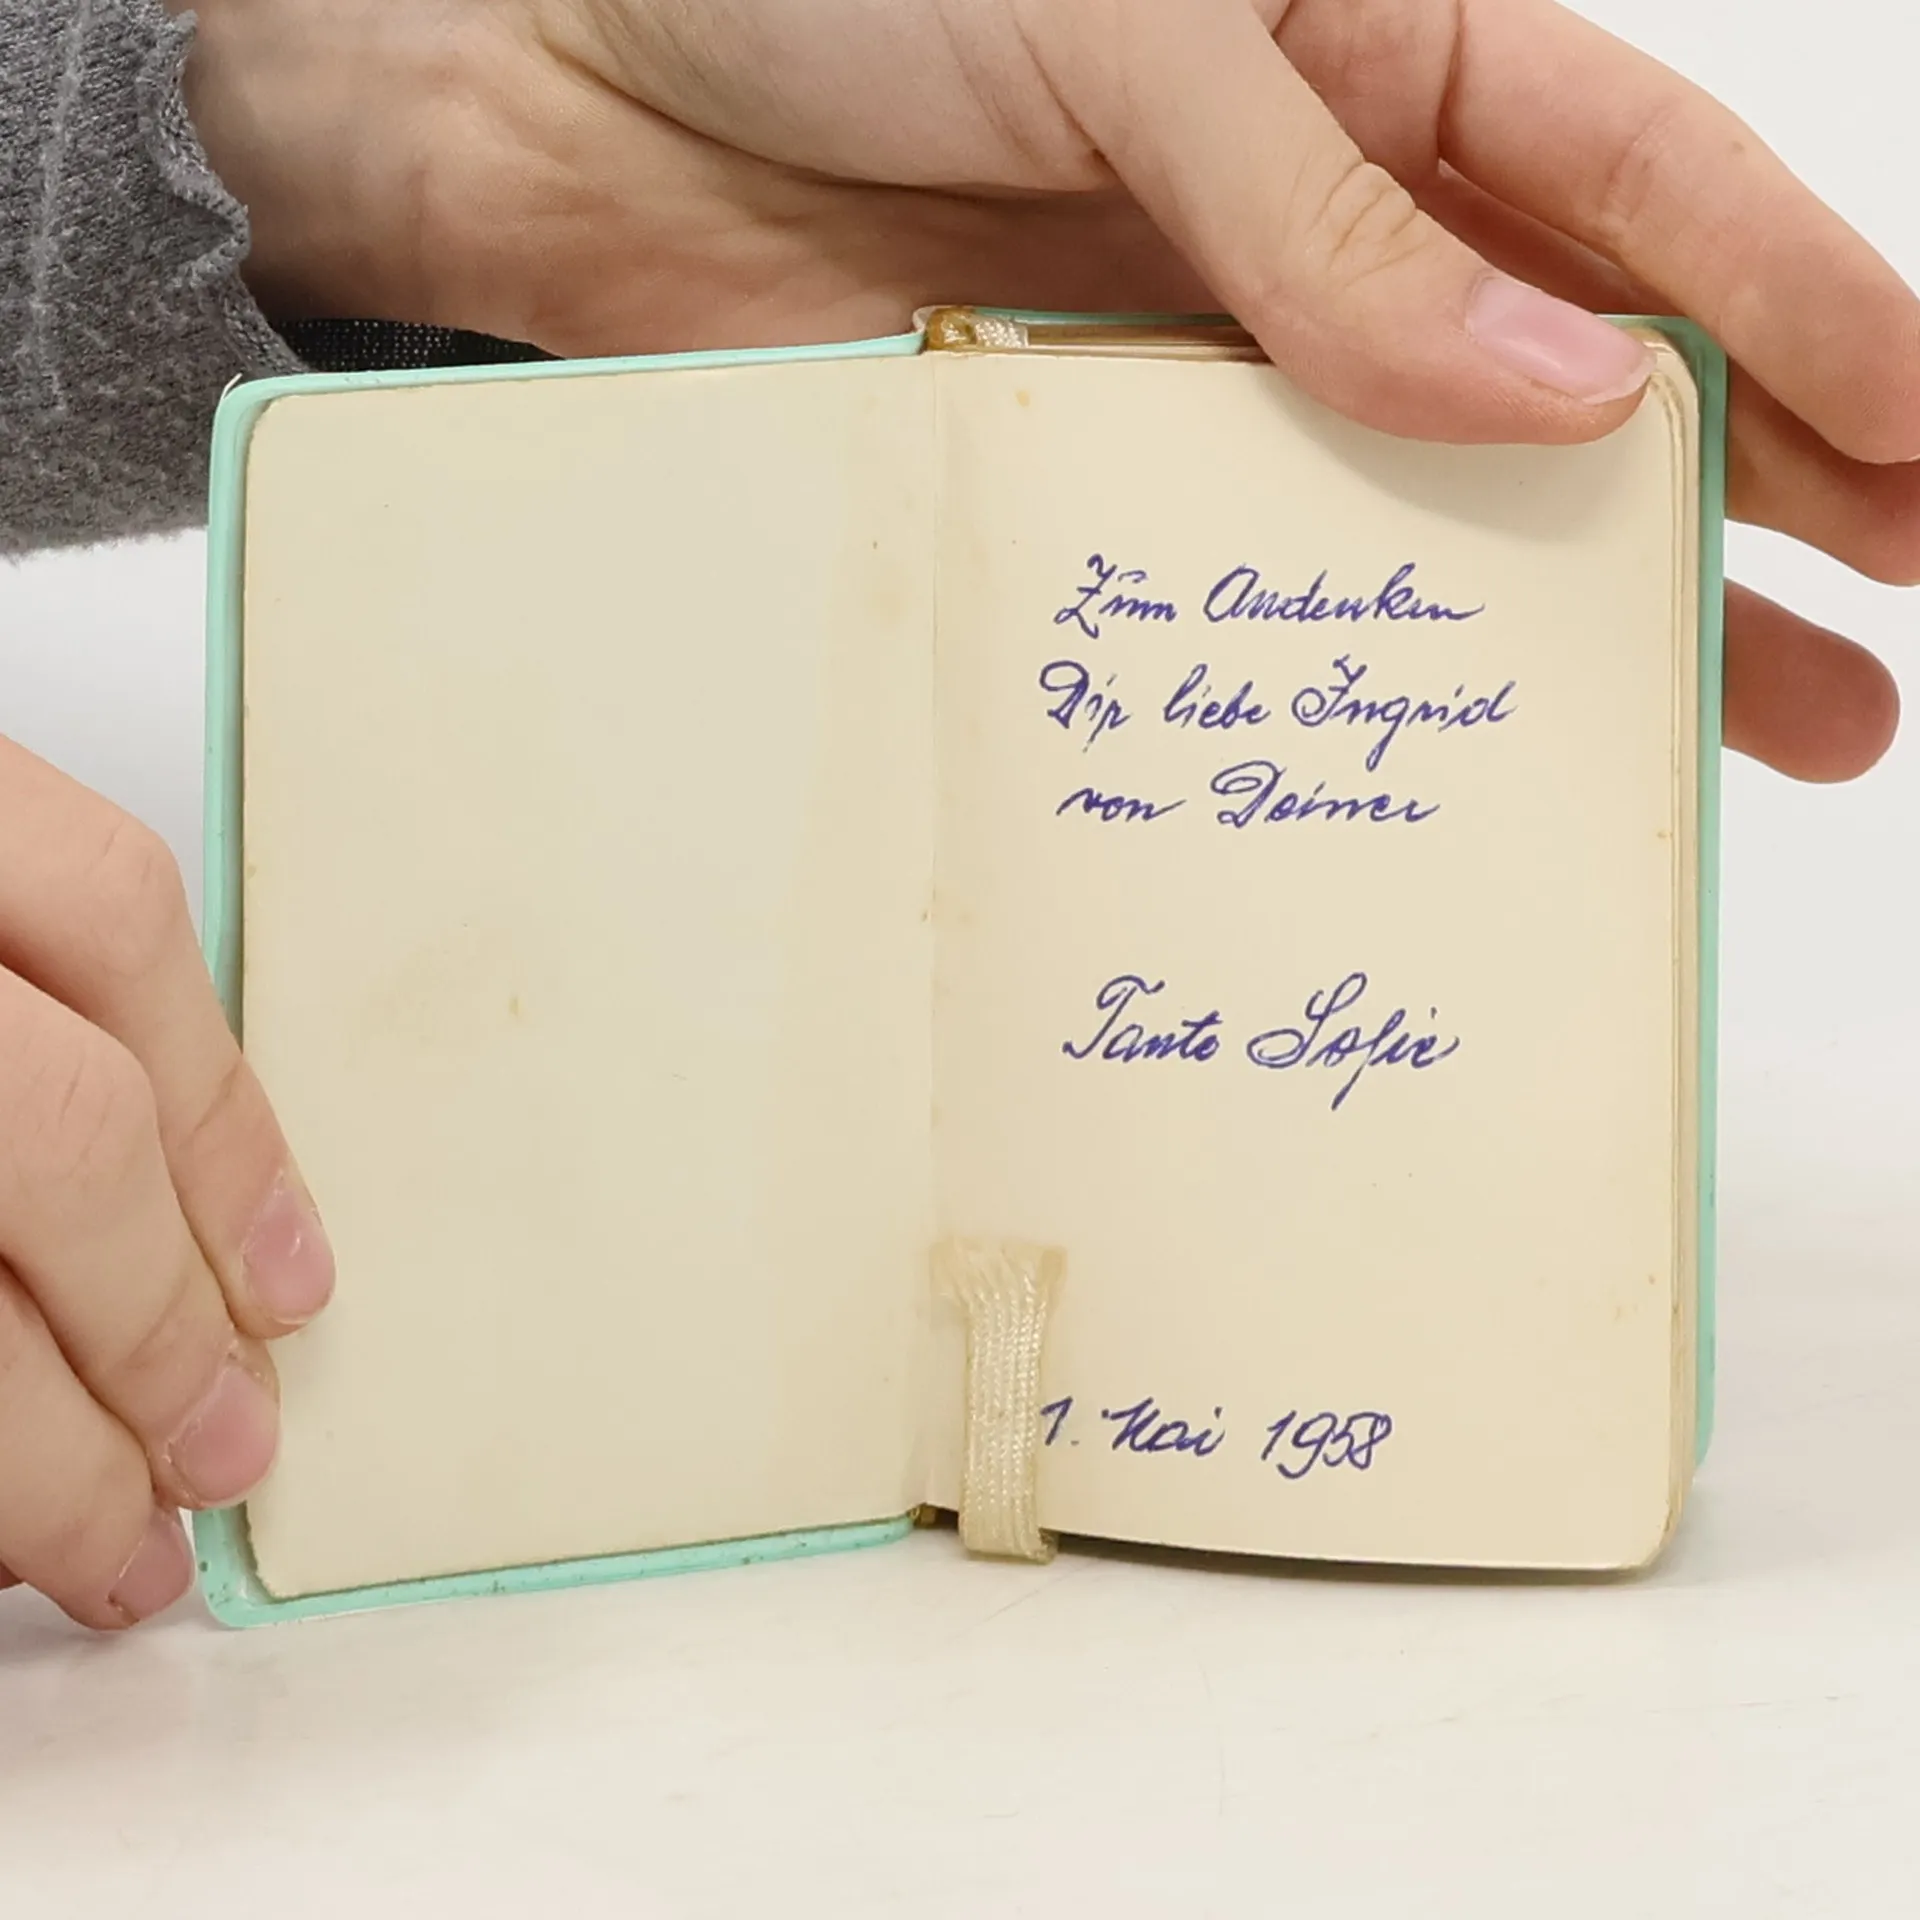 Zum Andenken
Dir liebe Ingrid
von Deiner
Tante Sofie
1. Mai 1958